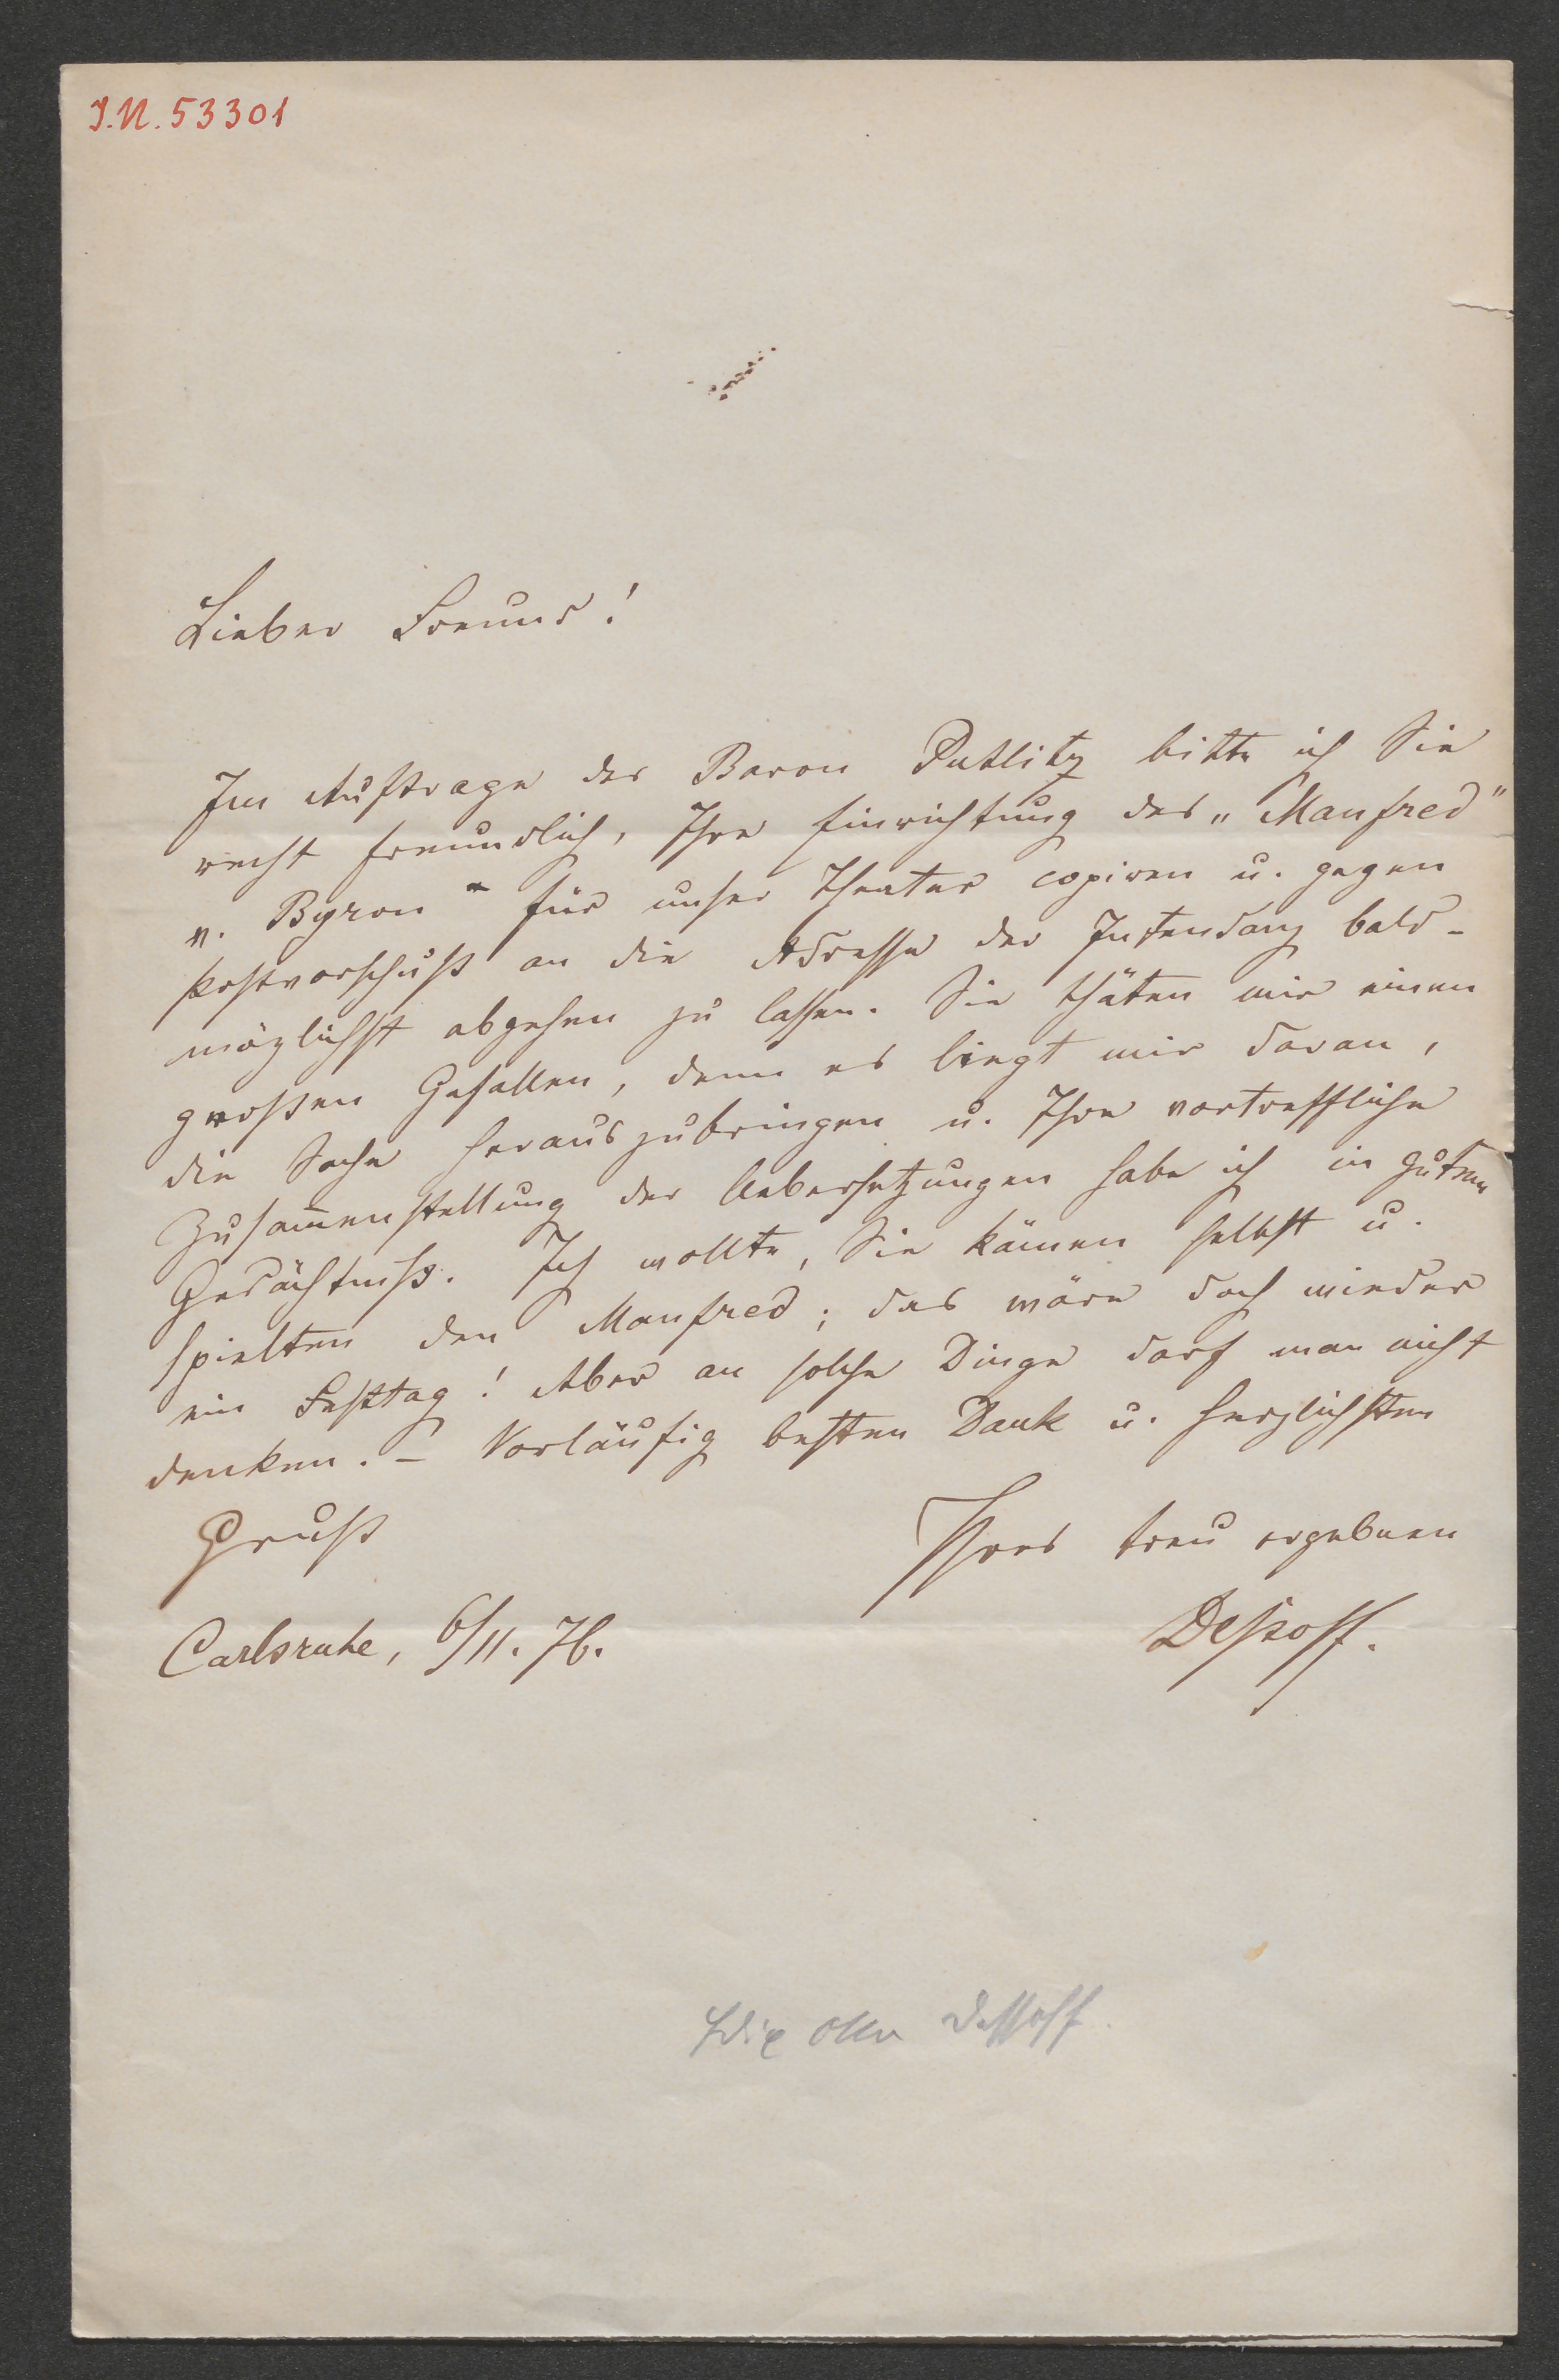 I.N. 53301
Lieber Freund!
Im Auftrage des Baron Putlitz bitte ich Sie
recht freundlich, Ihre Einrichtung des „Manfred"
v. Byron" für unser Theater copiren u. gegen
Postvorschuß an die Adresse der Intendanz bald-
möglichst abgehen zu lassen. Sie thäten mir einen
großen Gefallen, denn es liegt mir daran,
die Sache herauszubringen u. Ihre vortreffliche
Zusam̅enstellung der Uebersetzungen habe ich in gutem
Gedächtniß. Ich wollte, Sie kämen selbst u.
spielten den Manfred; das wäre doch wieder
ein Festtag! Aber an solche Dinge darf man nicht
denken. – Vorläufig besten Dank u. herzlichsten
Gruß
Ihres treu ergebnen
Carlsruhe, 6/11. 76.
Dessoff.
Dessoff